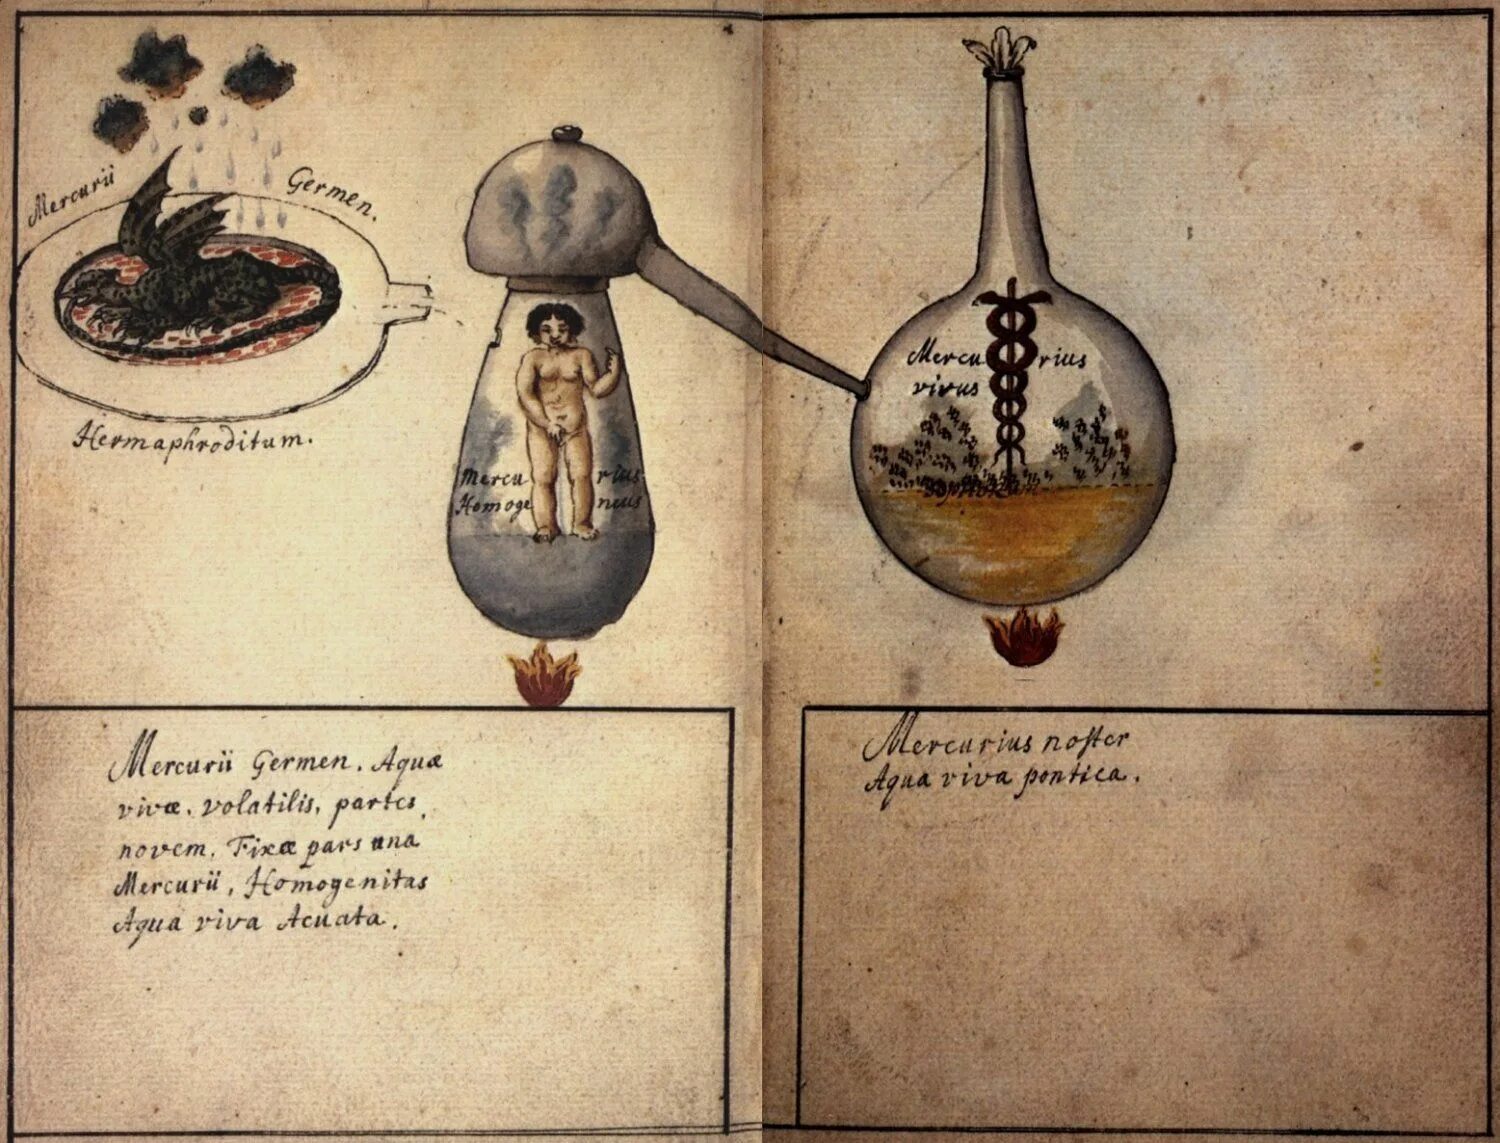 Mercurii Germen.
Hermaphroditum.
Mercurius
Homogeneus
Mercurius
vivus
Mercurii Germen. Aquæ
vivæ. volatilis, partes
novem. Fixæ pars una
Mercurii, Homogenitas
Aqua viva Acuata.
Mercurius noster
Aqua viva pontica.